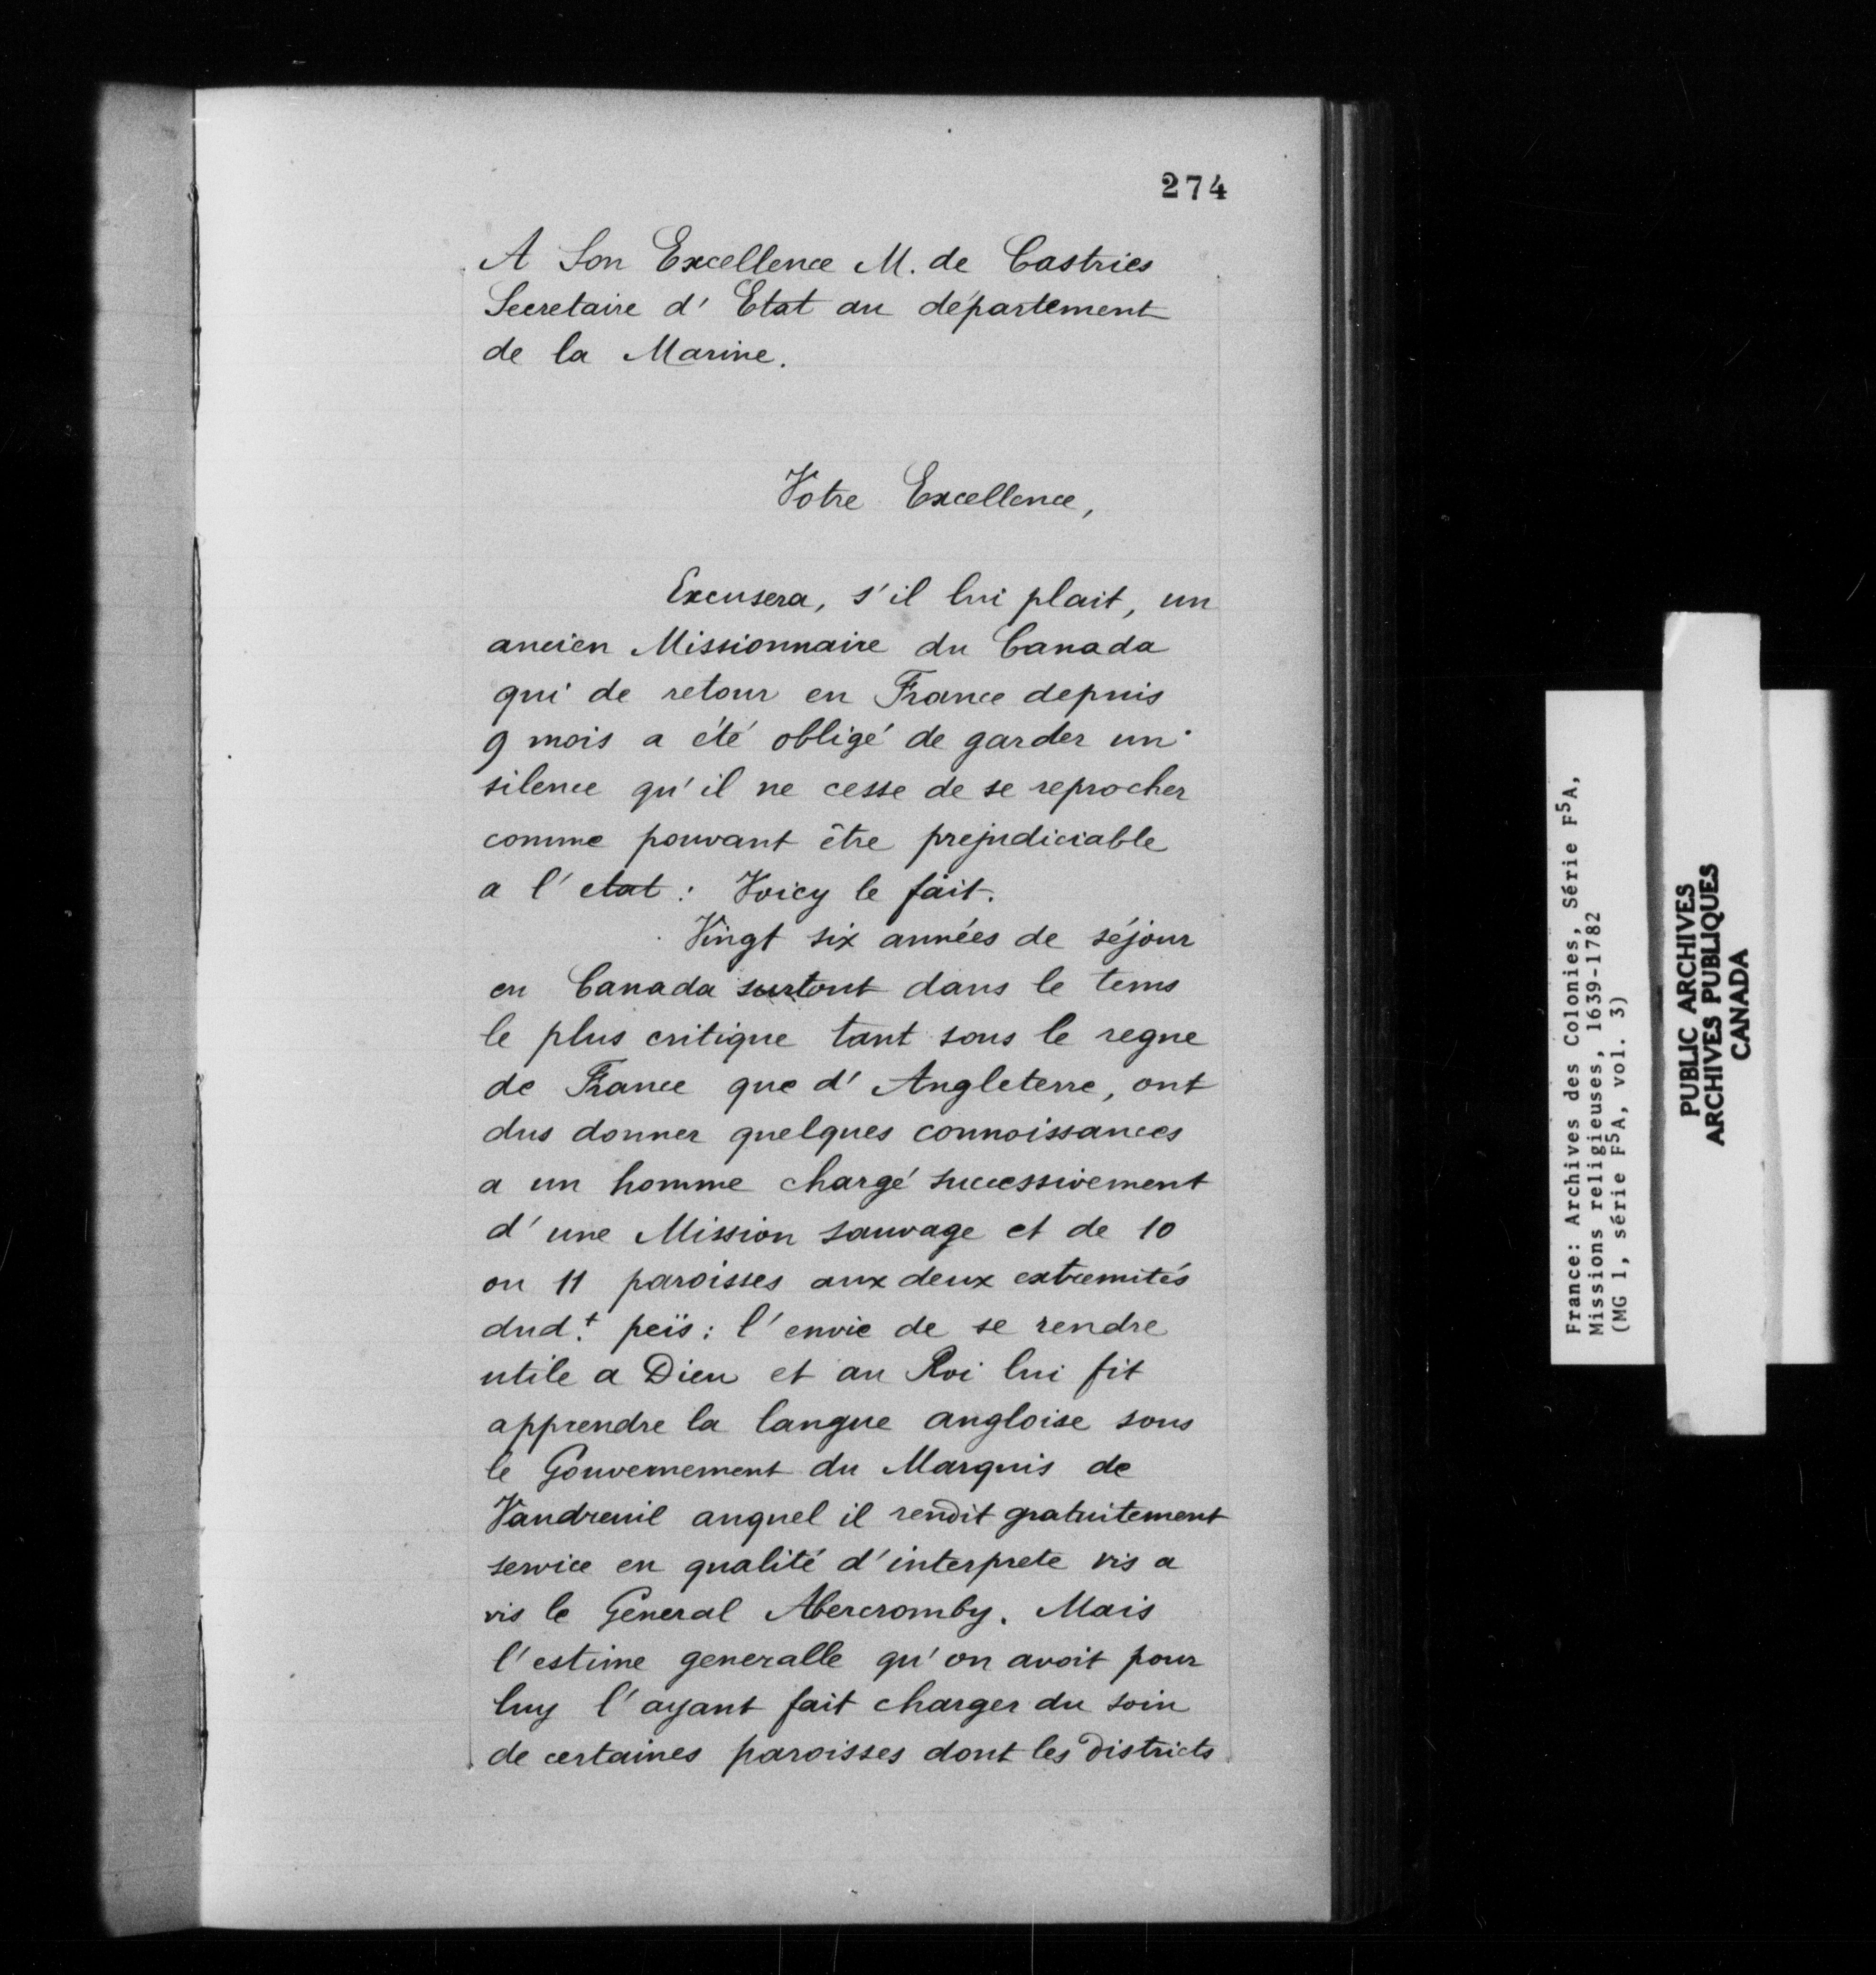 274
A Son Excellence M. de Castries
Secretaire d' Etat au département
de la Marine.
Votre Excellence,
Excusera, s'il lui plait, un
ancien Missionnaire du Canada
qui de retour en France depuis
9 mois a été obligé de garder un
silence qu'il ne cesse de se reprocher
comme pouvant être prejudiciable
a l' etat : Voicy le fait.
Vingt six années de séjour
en Canada surtout dans le tems
le plus critique tant sous le regne
de France que d' Angleterre, ont
dus donner quelques connoissances
a un homme chargé successivement
d' une Mission sauvage et de 10
ou 11 paroisses aux deux extremités
dud.t peïs : l' envie de se rendre
utile a Dieu et au Roi lui fit
apprendre la langue angloise sous
le Gouvernement du Marquis de
Vaudreuil auquel il rendit gratuitement
service en qualité d' interprete vis a
vis le General Abercromby. Mais
l' estime generalle qu' on avoit pour
luy l' ayant fait charger du soin
de certaines paroisses dont les districts
France: Archives des Colonies, Série F5A,
Missions religieuses, 1639-1782
(MG 1, série F5A, vol. 3)
PUBLIC ARCHIVES
ARCHIVES PUBLIQUES
CANADA